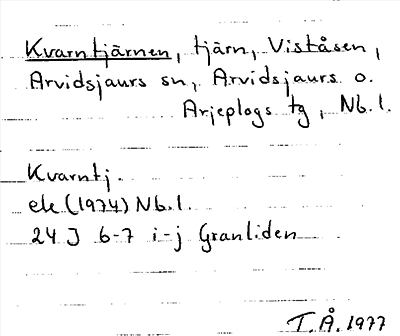 Kvarntjärnen, tjärn, Viståsen,
Arvidsjaurs sn, Arvidsjaurs o.
Arjeplogs tg, Nb.l.
Kvarntj.
ek (1974) Nb.l.
24 J 6-7 i-j Granliden
T.Å. 1977